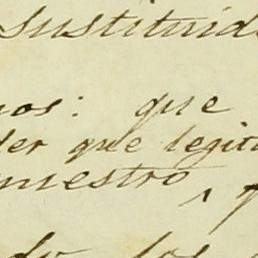 sustituid
nos: que
der que legiti
nuestro,
do los